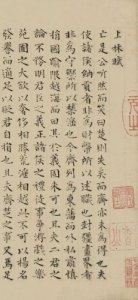 上林賦
亡是公听然而笑曰楚則失矣而齊亦未為得也夫
使諸侯納貢者非為財幣所以述職也封疆畫界者
非為守禦所以禁淫也今齊列為東藩而外私肅慎
捐國踰限越海而田其於義固未可也且二君之
論不務明君臣之義正諸侯之禮徒事爭游戲之樂
苑囿之大欲以奢侈相勝荒淫相越此不可以揚名
發譽而適足以貶君自損也且夫齊楚之事又烏足